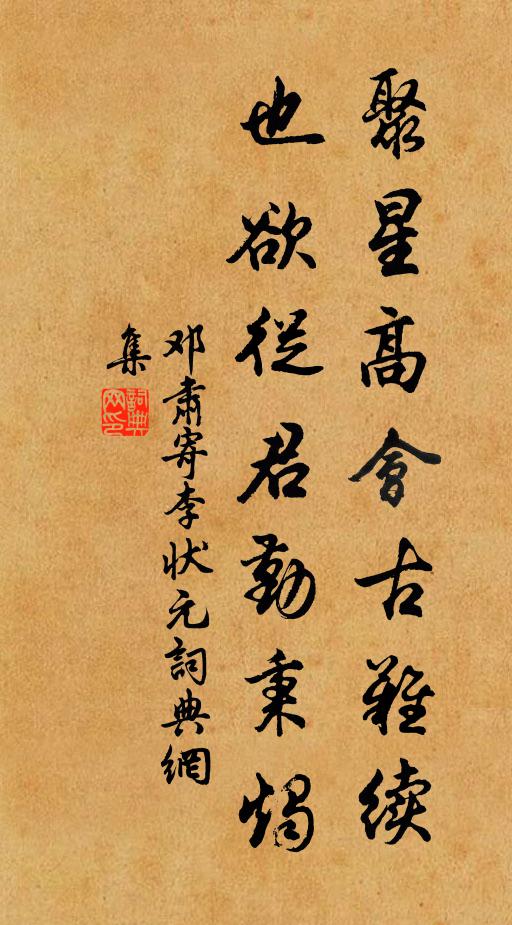 聚星高會古難续
也欲從君勤秉燭
邓肅寄李状元詞典網
集
詞典網印